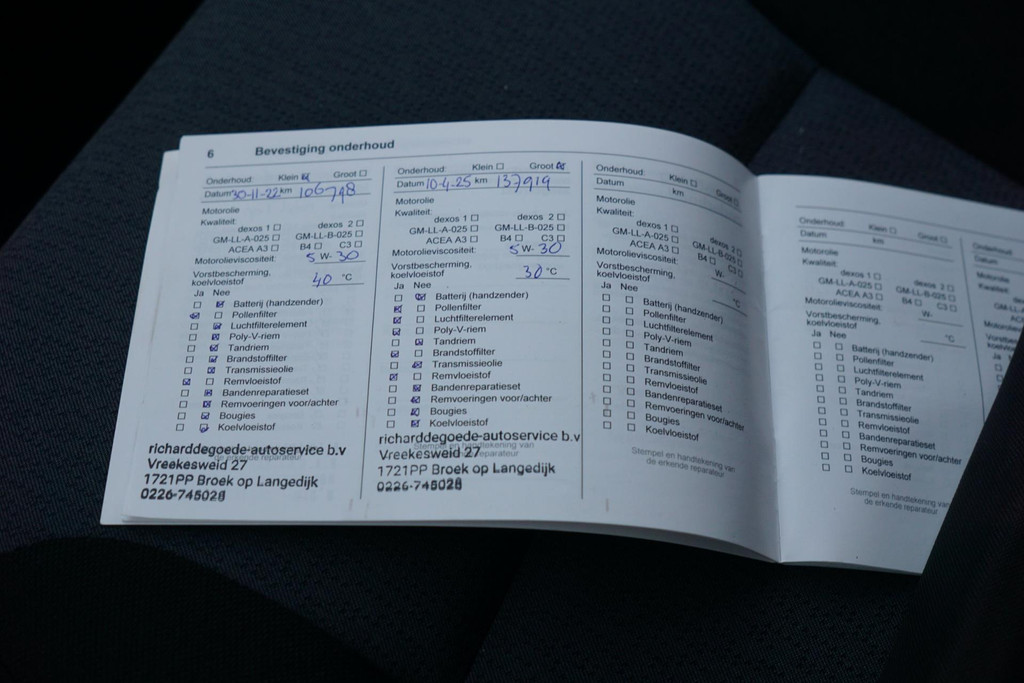 6 Bevestiging onderhoud
Onderhoud: Klein ☒ Groot ☐
Datum 30-11-22 km 106798
Motorolie
Kwaliteit:
dexos 1 ☐ dexos 2 ☐
GM-LL-A-025 ☐ GM-LL-B-025 ☐
ACEA A3 ☐ B4 ☐ C3 ☐
Motorolieviscositeit: 5 W- 30
Vorstbescherming,
koelvloeistof 40 °C
Ja Nee
☐ ☒ Batterij (handzender)
☒ ☐ Pollenfilter
☐ ☒ Luchtfilterelement
☐ ☒ Poly-V-riem
☐ ☒ Tandriem
☐ ☒ Brandstoffilter
☐ ☒ Transmissieolie
☒ ☐ Remvloeistof
☐ ☒ Bandenreparatieset
☐ ☒ Remvoeringen voor/achter
☐ ☒ Bougies
☐ ☒ Koelvloeistof
richarddegoede-autoservice b.v
Vreekesweid 27
de erkende reparateur
1721PP Broek op Langedijk
0226-745028
Onderhoud: Klein ☐ Groot ☒
Datum 10-4-25 km 137919
Motorolie
Kwaliteit:
dexos 1 ☐ dexos 2 ☐
GM-LL-A-025 ☐ GM-LL-B-025 ☐
ACEA A3 ☐ B4 ☐ C3 ☐
Motorolieviscositeit: 5 W- 30
Vorstbescherming,
koelvloeistof 30 °C
Ja Nee
☐ ☒ Batterij (handzender)
☒ ☐ Pollenfilter
☒ ☐ Luchtfilterelement
☒ ☐ Poly-V-riem
☐ ☒ Tandriem
☒ ☐ Brandstoffilter
☐ ☒ Transmissieolie
☒ ☐ Remvloeistof
☐ ☒ Bandenreparatieset
☐ ☒ Remvoeringen voor/achter
☐ ☒ Bougies
☐ ☒ Koelvloeistof
richarddegoede-autoservice b.v
Stempel en handtekening van
Vreekesweid 27
de erkende reparateur
1721PP Broek op Langedijk
0226-745028
Onderhoud: Klein ☐ Groot ☐
Datum km
Motorolie
Kwaliteit:
dexos 1 ☐ dexos 2 ☐
GM-LL-A-025 ☐ GM-LL-B-025 ☐
ACEA A3 ☐ B4 ☐ C3 ☐
Motorolieviscositeit: W-
Vorstbescherming,
koelvloeistof °C
Ja Nee
☐ ☐ Batterij (handzender)
☐ ☐ Pollenfilter
☐ ☐ Luchtfilterelement
☐ ☐ Poly-V-riem
☐ ☐ Tandriem
☐ ☐ Brandstoffilter
☐ ☐ Transmissieolie
☐ ☐ Remvloeistof
☐ ☐ Bandenreparatieset
☐ ☐ Remvoeringen voor/achter
☐ ☐ Bougies
☐ ☐ Koelvloeistof
Stempel en handtekening van
de erkende reparateur
Onderhoud: Klein ☐ Groot ☐
Datum km
Motorolie
Kwaliteit:
dexos 1 ☐ dexos 2 ☐
GM-LL-A-025 ☐ GM-LL-B-025 ☐
ACEA A3 ☐ B4 ☐ C3 ☐
Motorolieviscositeit: W-
Vorstbescherming,
koelvloeistof °C
Ja Nee
☐ ☐ Batterij (handzender)
☐ ☐ Pollenfilter
☐ ☐ Luchtfilterelement
☐ ☐ Poly-V-riem
☐ ☐ Tandriem
☐ ☐ Brandstoffilter
☐ ☐ Transmissieolie
☐ ☐ Remvloeistof
☐ ☐ Bandenreparatieset
☐ ☐ Remvoeringen voor/achter
☐ ☐ Bougies
☐ ☐ Koelvloeistof
Stempel en handtekening van
de erkende reparateur
Datum
Motorolie
Kwaliteit: